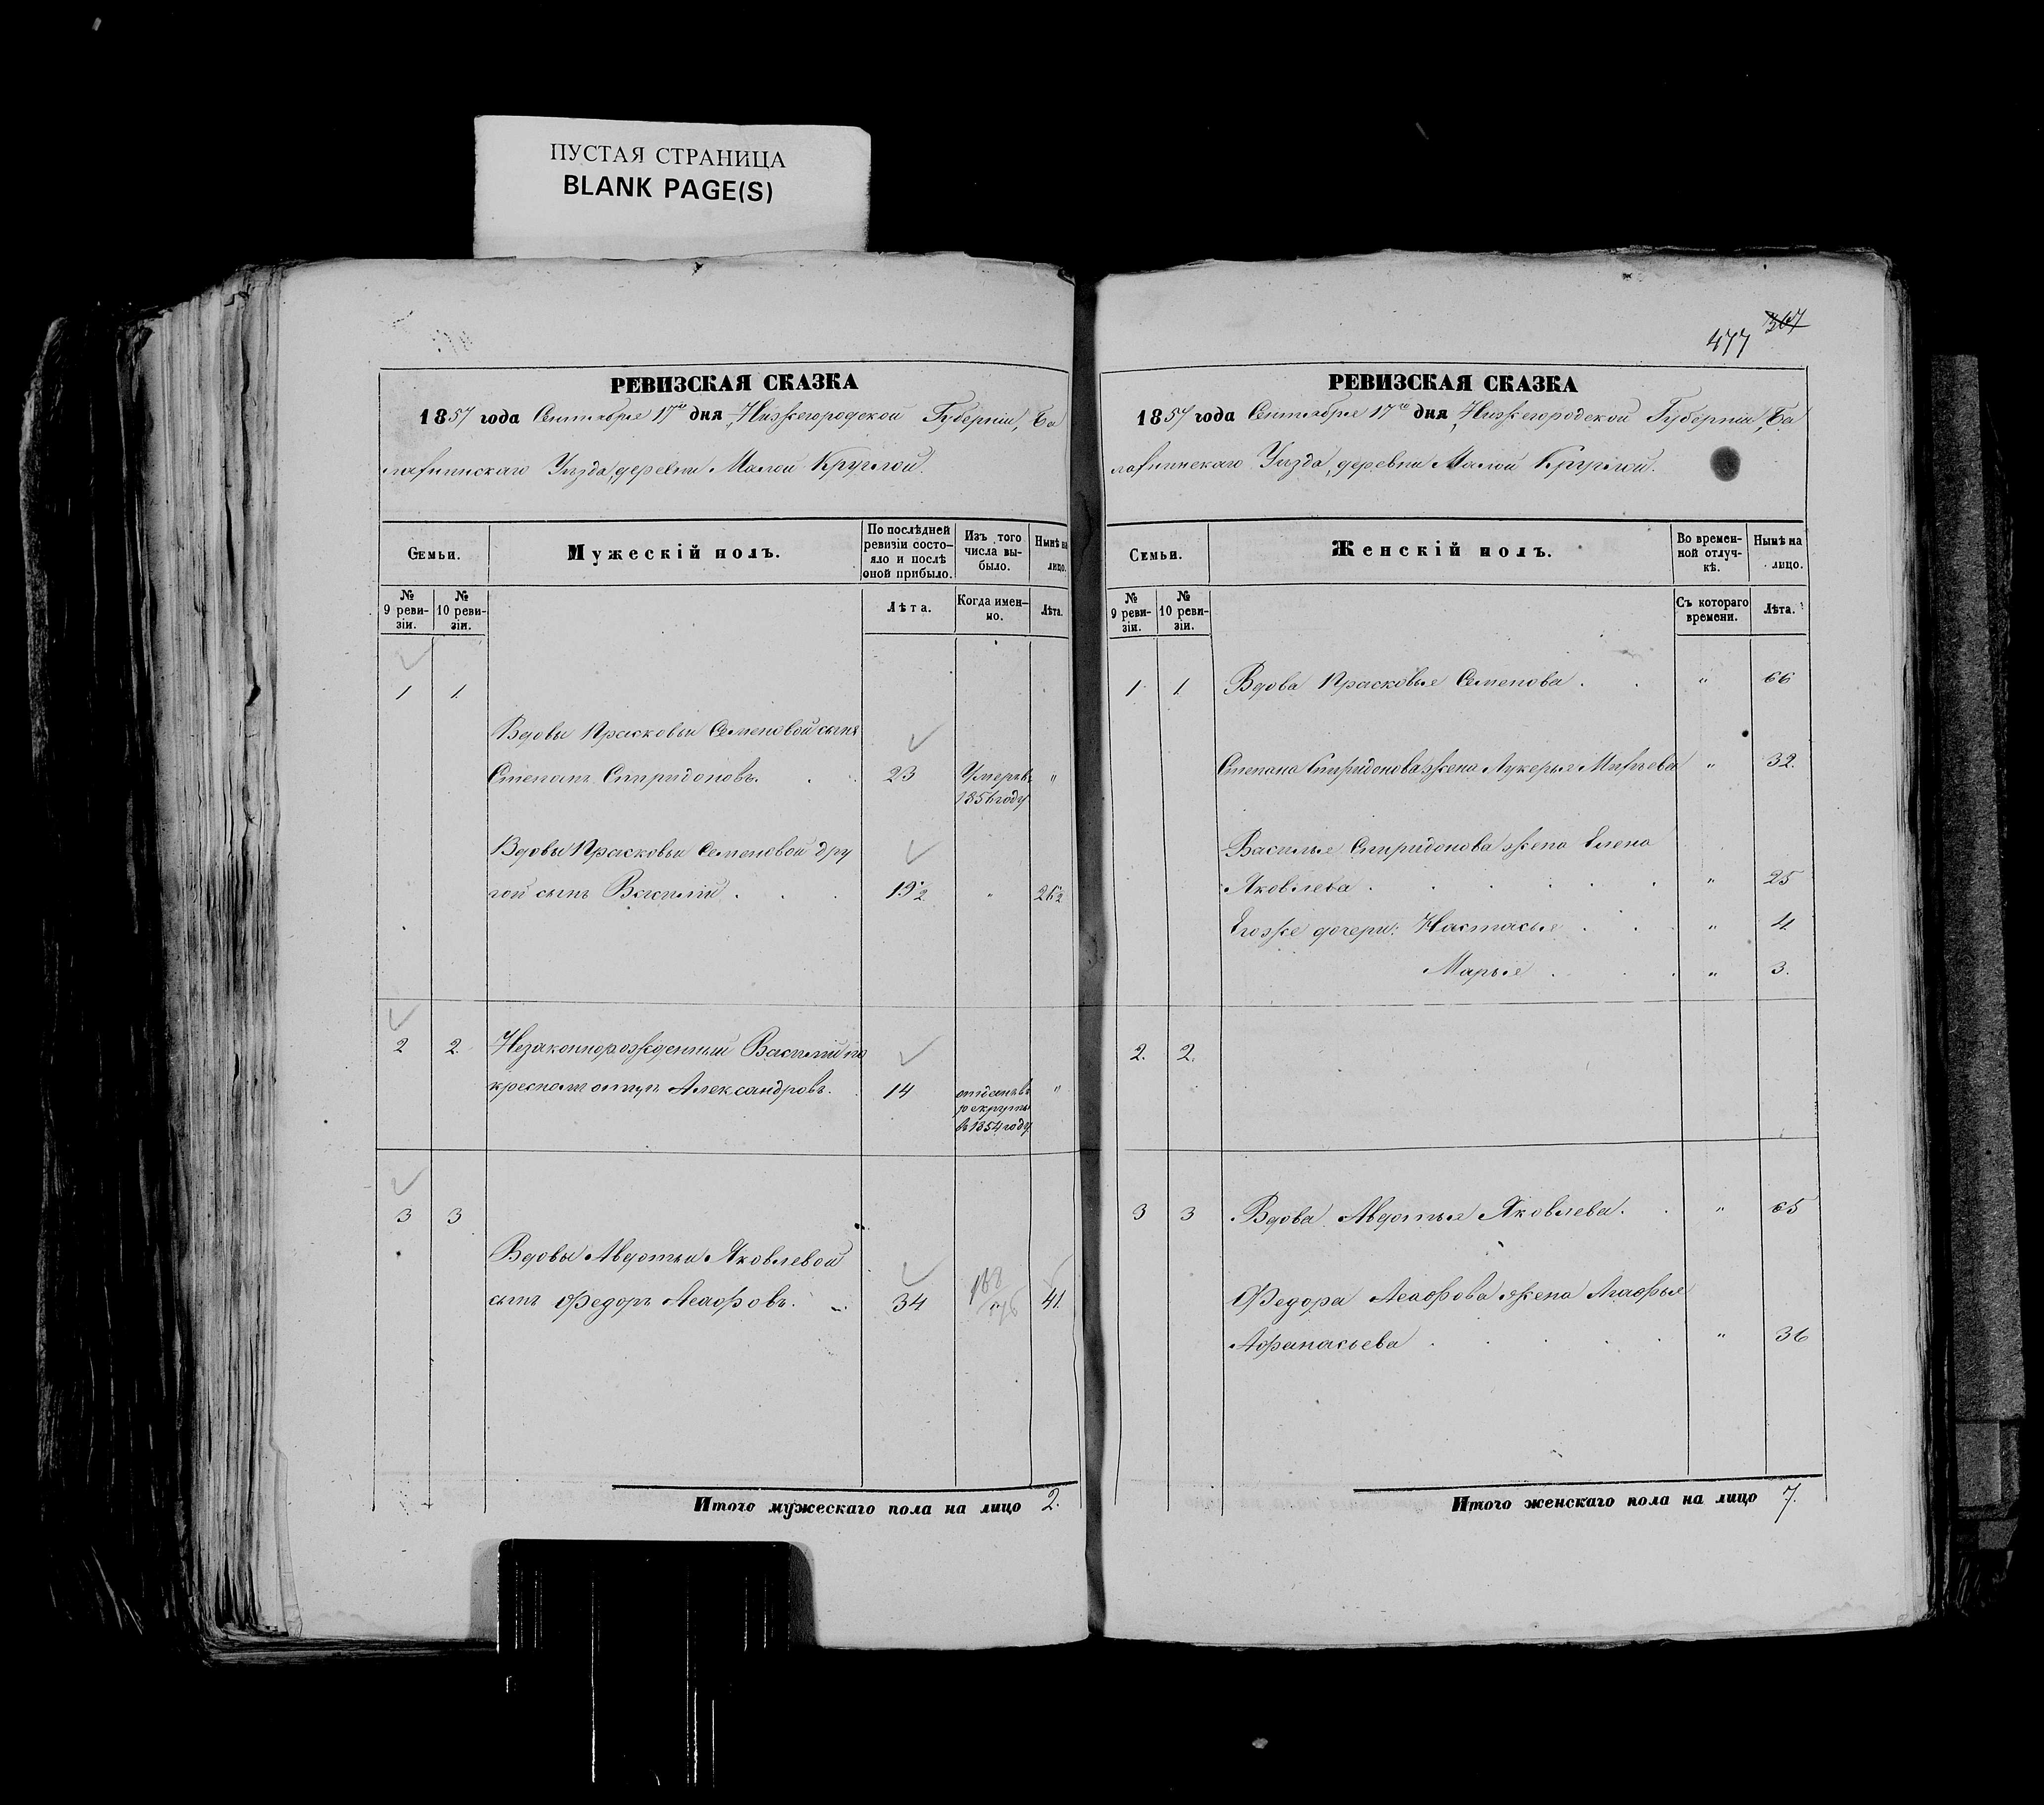 ПУСТАЯ СТРАНИЦА
BLANK PAGE(S)
РЕВИЗСКАЯ СКАЗКА
1857 года Сентября 17го дня Нижегородской Губерніи, Ба
лахнинскаго Уѣзда, деревни Малой Круглой.
Семьи.
Мужескій полъ.
По послѣдней
ревизіи состо-
яло и послѣ
оной прибыло.
Изъ того
числа вы-
было.
Нынѣ на
лицо.
№
9 реви-
зіи.
№
10 реви-
зіи.
Лѣта.
Когда имен-
но.
Лѣта.
1 1.
Вдовы Прасковьи Семеновой сынъ
Степанъ Спиридоновъ. 23 Умеръ въ "
1856 году
Вдовы Прасковьи Семеновой дру
гой сынъ Василій 19½ " 26½
2 2. Незаконнорожденный Василій по
крестном отцѣ Александровъ. 14 отданъ въ "
рекруты
въ 1854 году
3 3
Вдовы Авдотьи Яковлевой
сынъ Федоръ Асафовъ. 34 41.
Итого мужескаго пола на лицо 2.
367
477
РЕВИЗСКАЯ СКАЗКА
1857 года Сентября 17го дня Нижегородской Губерніи, Ба
лахнинскаго Уѣзда, деревни Малой Круглой.
Семьи.
Женскій полъ.
Во времен-
ной отлуч-
кѣ.
Нынѣ на
лицо.
№
9 реви-
зіи.
№
10 реви-
зіи.
Съ котораго
времени.
Лѣта.
1. 1. Вдова Прасковья Семенова " 66
Степана Спиридонова жена Лукерья " 32.
Василья Спиридонова жена Елена
Яковлева " 25
Егоже дочери: Настасья " 4
Марья " 3.
2. 2.
3 3 Вдова Авдотья Яковлева. " 65
Федора Асафова жена Агафья
Афанасьева " 36
Итого женскаго пола на лицо 7.